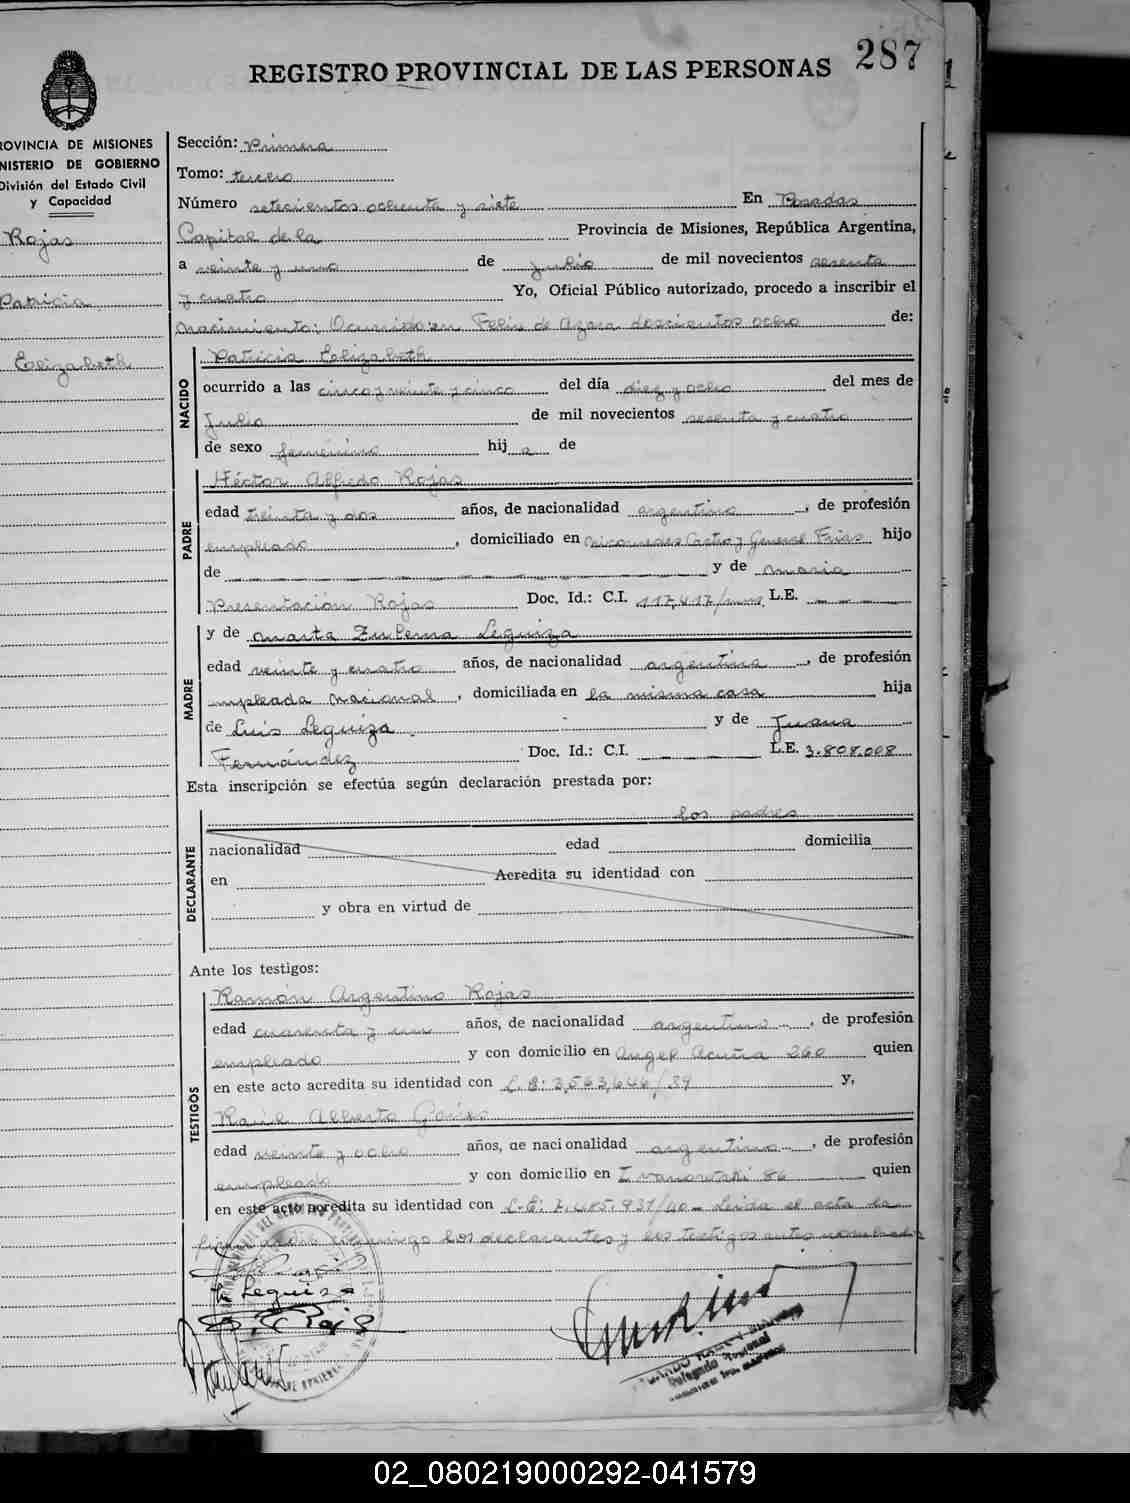 287
REGISTRO PROVINCIAL DE LAS PERSONAS
ROVINCIA DE MISIONES
NISTERIO DE GOBIERNO
División del Estado Civil
y Capacidad
Rojas
Patricia
Elizabeth
Sección: Primera
Tomo: tercero
Número setecientos ochenta y siete En Posadas
Capital de la Provincia de Misiones, República Argentina,
a veinte y uno de julio de mil novecientos sesenta
y cuatro Yo, Oficial Público autorizado, procedo a inscribir el
nacimiento: Ocurrido en Felix de Azara doscientos ocho de:
NACIDO
Patricia Elizabeth
ocurrido a las cinco y veinte y cinco del día diez y ocho del mes de
Julio de mil novecientos sesenta y cuatro
de sexo femenino hij a de
PADRE
Héctor Alfredo Rojas
edad treinta y dos años, de nacionalidad argentino, de profesión
empleado, domiciliado en Nicomedes Castro y General Frias hijo
de y de Maria
Presentación Rojas Doc. Id.: C.I. 117.417/ L.E.
MADRE
y de Marta Zulema Leguiza
edad veinte y cuatro años, de nacionalidad argentina, de profesión
empleada nacional, domiciliada en la misma casa hija
de Luis Leguiza y de Juana
Fernández Doc. Id.: C.I. L.E. 3.808.008
Esta inscripción se efectúa según declaración prestada por:
DECLARANTE
los padres
nacionalidad edad domicilia
en Acredita su identidad con
y obra en virtud de
Ante los testigos:
TESTIGOS
Ramón Argentino Rojas
edad cuarenta y un años, de nacionalidad argentino, de profesión
empleado y con domicilio en Angel Acuña 260 quien
en este acto acredita su identidad con L.E: 3,563,646/39 y,
Raúl Alberto
edad veinte y ocho años, de nacionalidad argentino, de profesión
empleado y con domicilio en 86 quien
en este acto acredita su identidad con L.E: 7.485.931/40 - Leida el acta la
conmigo los declarantes y los testigos antes nombrados
Leguiza
Rojas
Delegado Regional
02_080219000292-041579